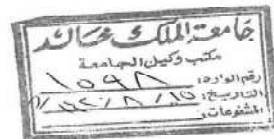 جامعة الملك خالد
مكتب وكيل الجامعة
رقم الوارد: ١٥٩٨
التاريخ:
المشفوعات: